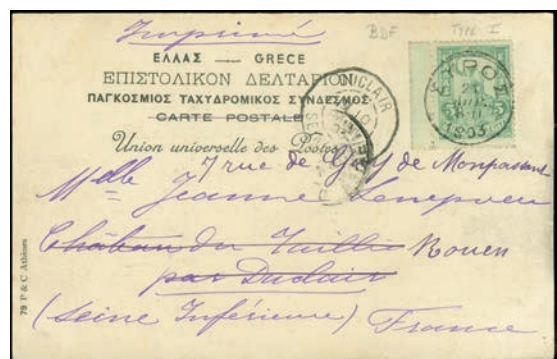 BDF TYPE I
Imprimé
ΕΛΛΑΣ — GRECE
ΕΠΙΣΤΟΛΙΚΟΝ ΔΕΛΤΑΡΙΟΝ
ΠΑΓΚΟΣΜΙΟΣ ΤΑΧΥΔΡΟΜΙΚΟΣ ΣΥΝΔΕΣΜΟΣ
CARTE POSTALE
Union universelle des Postes
DUCLAIR
ΣΥΡΟΣ
1903
5
7 rue de Guy de Monpassant
Melle Jeanne Lenepveu
Château du Taillis Rouen
par Duclair
(Seine Inférieure) France
79 P & C Athènes